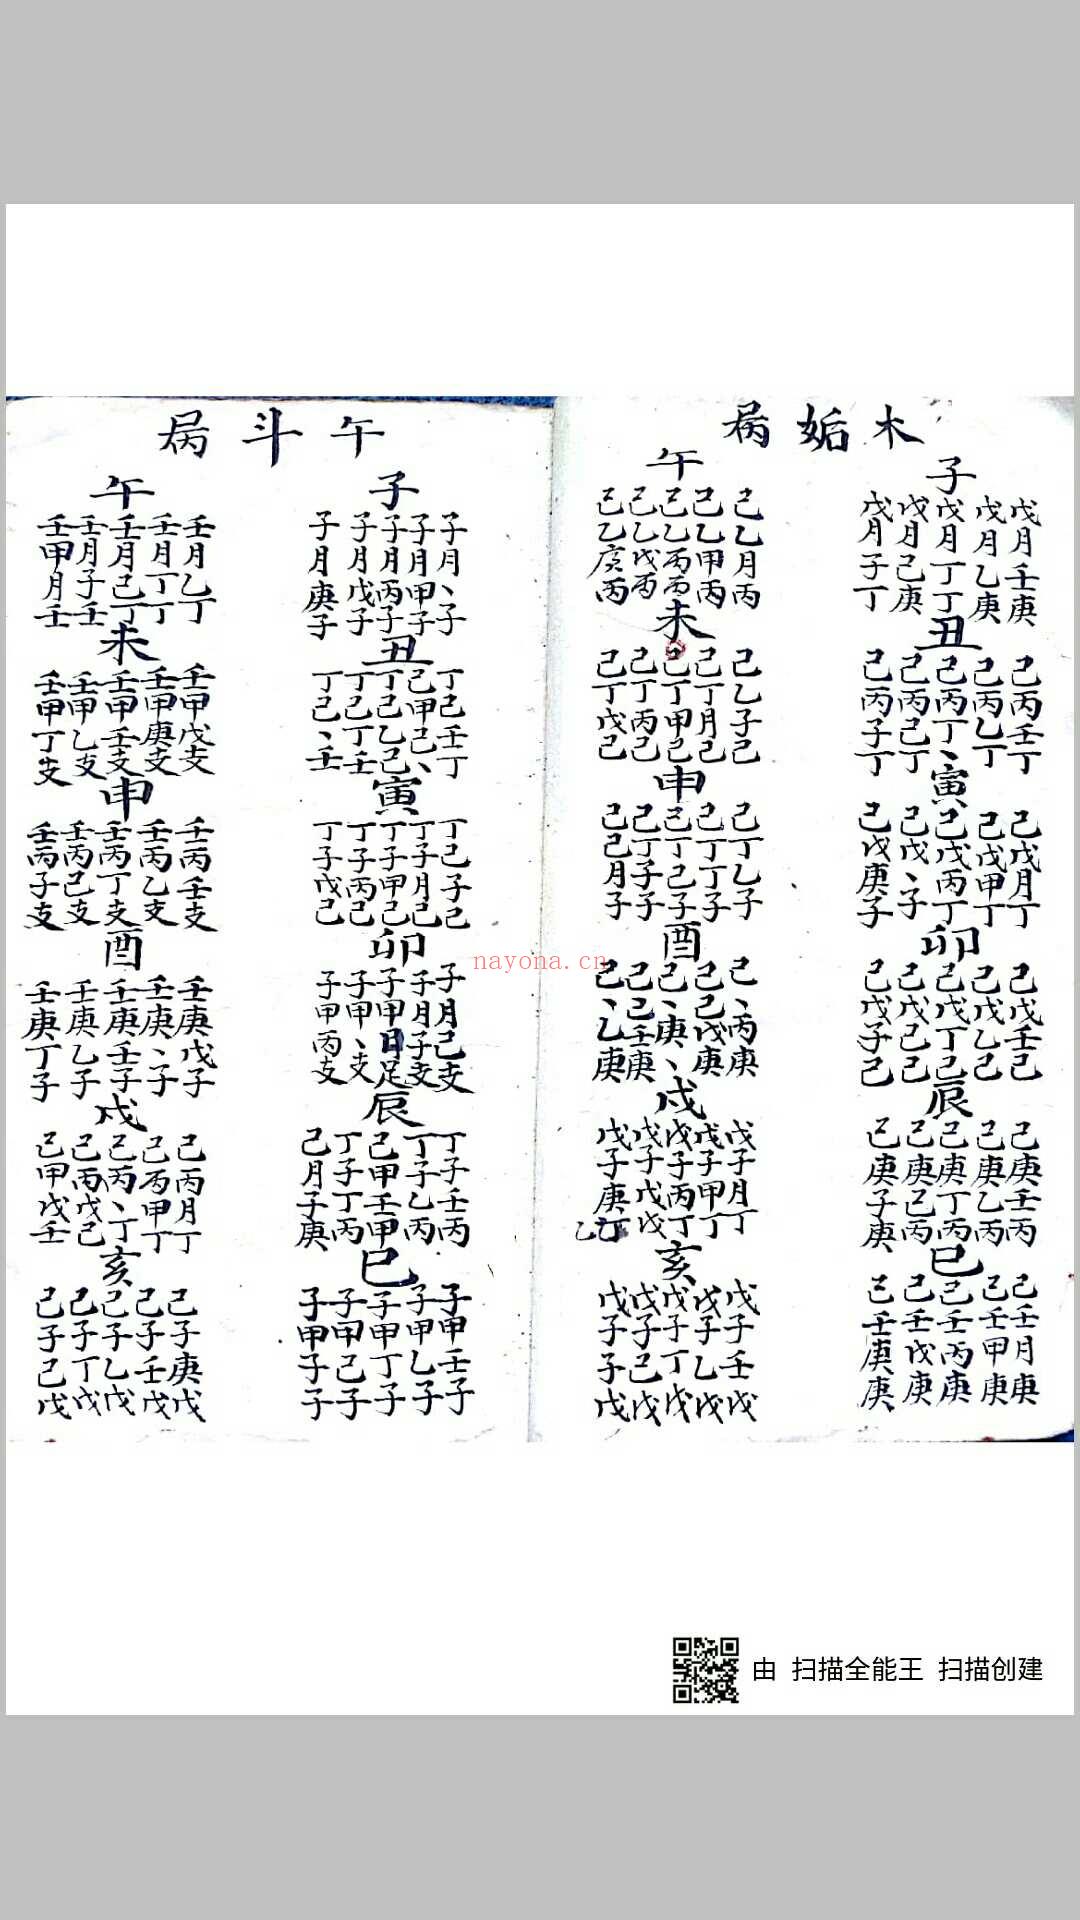 木姤局
子
戊月壬庚
戊月乙庚
戊月丁丁
戊月己庚
戊月子丁
丑
己丙壬丁
己丙乙丁
己丙丁、
己丙己丁
己丙子丁
寅
己戊月丁
己戊甲丁
己戊丙丁
己戊、子
己戊庚子
卯
己戊壬己
己戊乙己
己戊丁己
己戊己己
己戊子己
辰
己庚壬丙
己庚乙丙
己庚丁丙
己庚己丙
己庚子庚
巳
己壬月庚
己壬甲庚
己壬丙庚
己壬戊庚
己壬庚庚
午
己乙月丙
己乙甲丙
己乙丙丙
己乙戊丙
己乙庚丙
未
己乙子己
己丁月己
己丁甲己
己丁丙己
己丁戊己
申
己丁乙子
己丁丁子
己丁己子
己丁子子
己己月子
酉
己、丙庚
己己戊庚
己、庚、
己己壬庚
己、乙庚
戌
戊子月丁
戊子甲丁
戊子丙丁
戊子戊戊
戊子庚乙
亥
戊子壬戊
戊子乙戊
戊子丁戊
戊子己戊
戊子子戊
午斗局
子
子月、子
子月甲子
子月丙子
子月戊子
子月庚子
丑
丁己壬丁
己甲己、
丁己乙己
丁己丁壬
丁己、壬
寅
丁己子己
丁子月己
丁子甲己
丁子丙己
丁子戊己
卯
子月己支
子月子支
子甲日足
子甲、支
子甲丙支
辰
丁子壬丙
丁子乙丙
己甲壬甲
丁子丁丙
己月子庚
巳
子甲壬子
子甲乙子
子甲丁子
子甲己子
子甲子子
午
壬月乙丁
壬月丁丁
壬月己丁
壬月子壬
壬甲月壬
未
壬甲戊支
壬甲庚支
壬甲壬支
壬甲乙支
壬甲丁支
申
壬丙壬支
壬丙乙支
壬丙丁支
壬丙己支
壬丙子支
酉
壬庚戊子
壬庚、子
壬庚壬子
壬庚乙子
壬庚丁子
戌
己丙月丁
己丙甲丁
己丙、丁
己丙戊己
己甲戊壬
亥
己子庚戊
己子壬戊
己子乙戊
己子丁戊
己子己戊
nayona.cn
由 扫描全能王 扫描创建